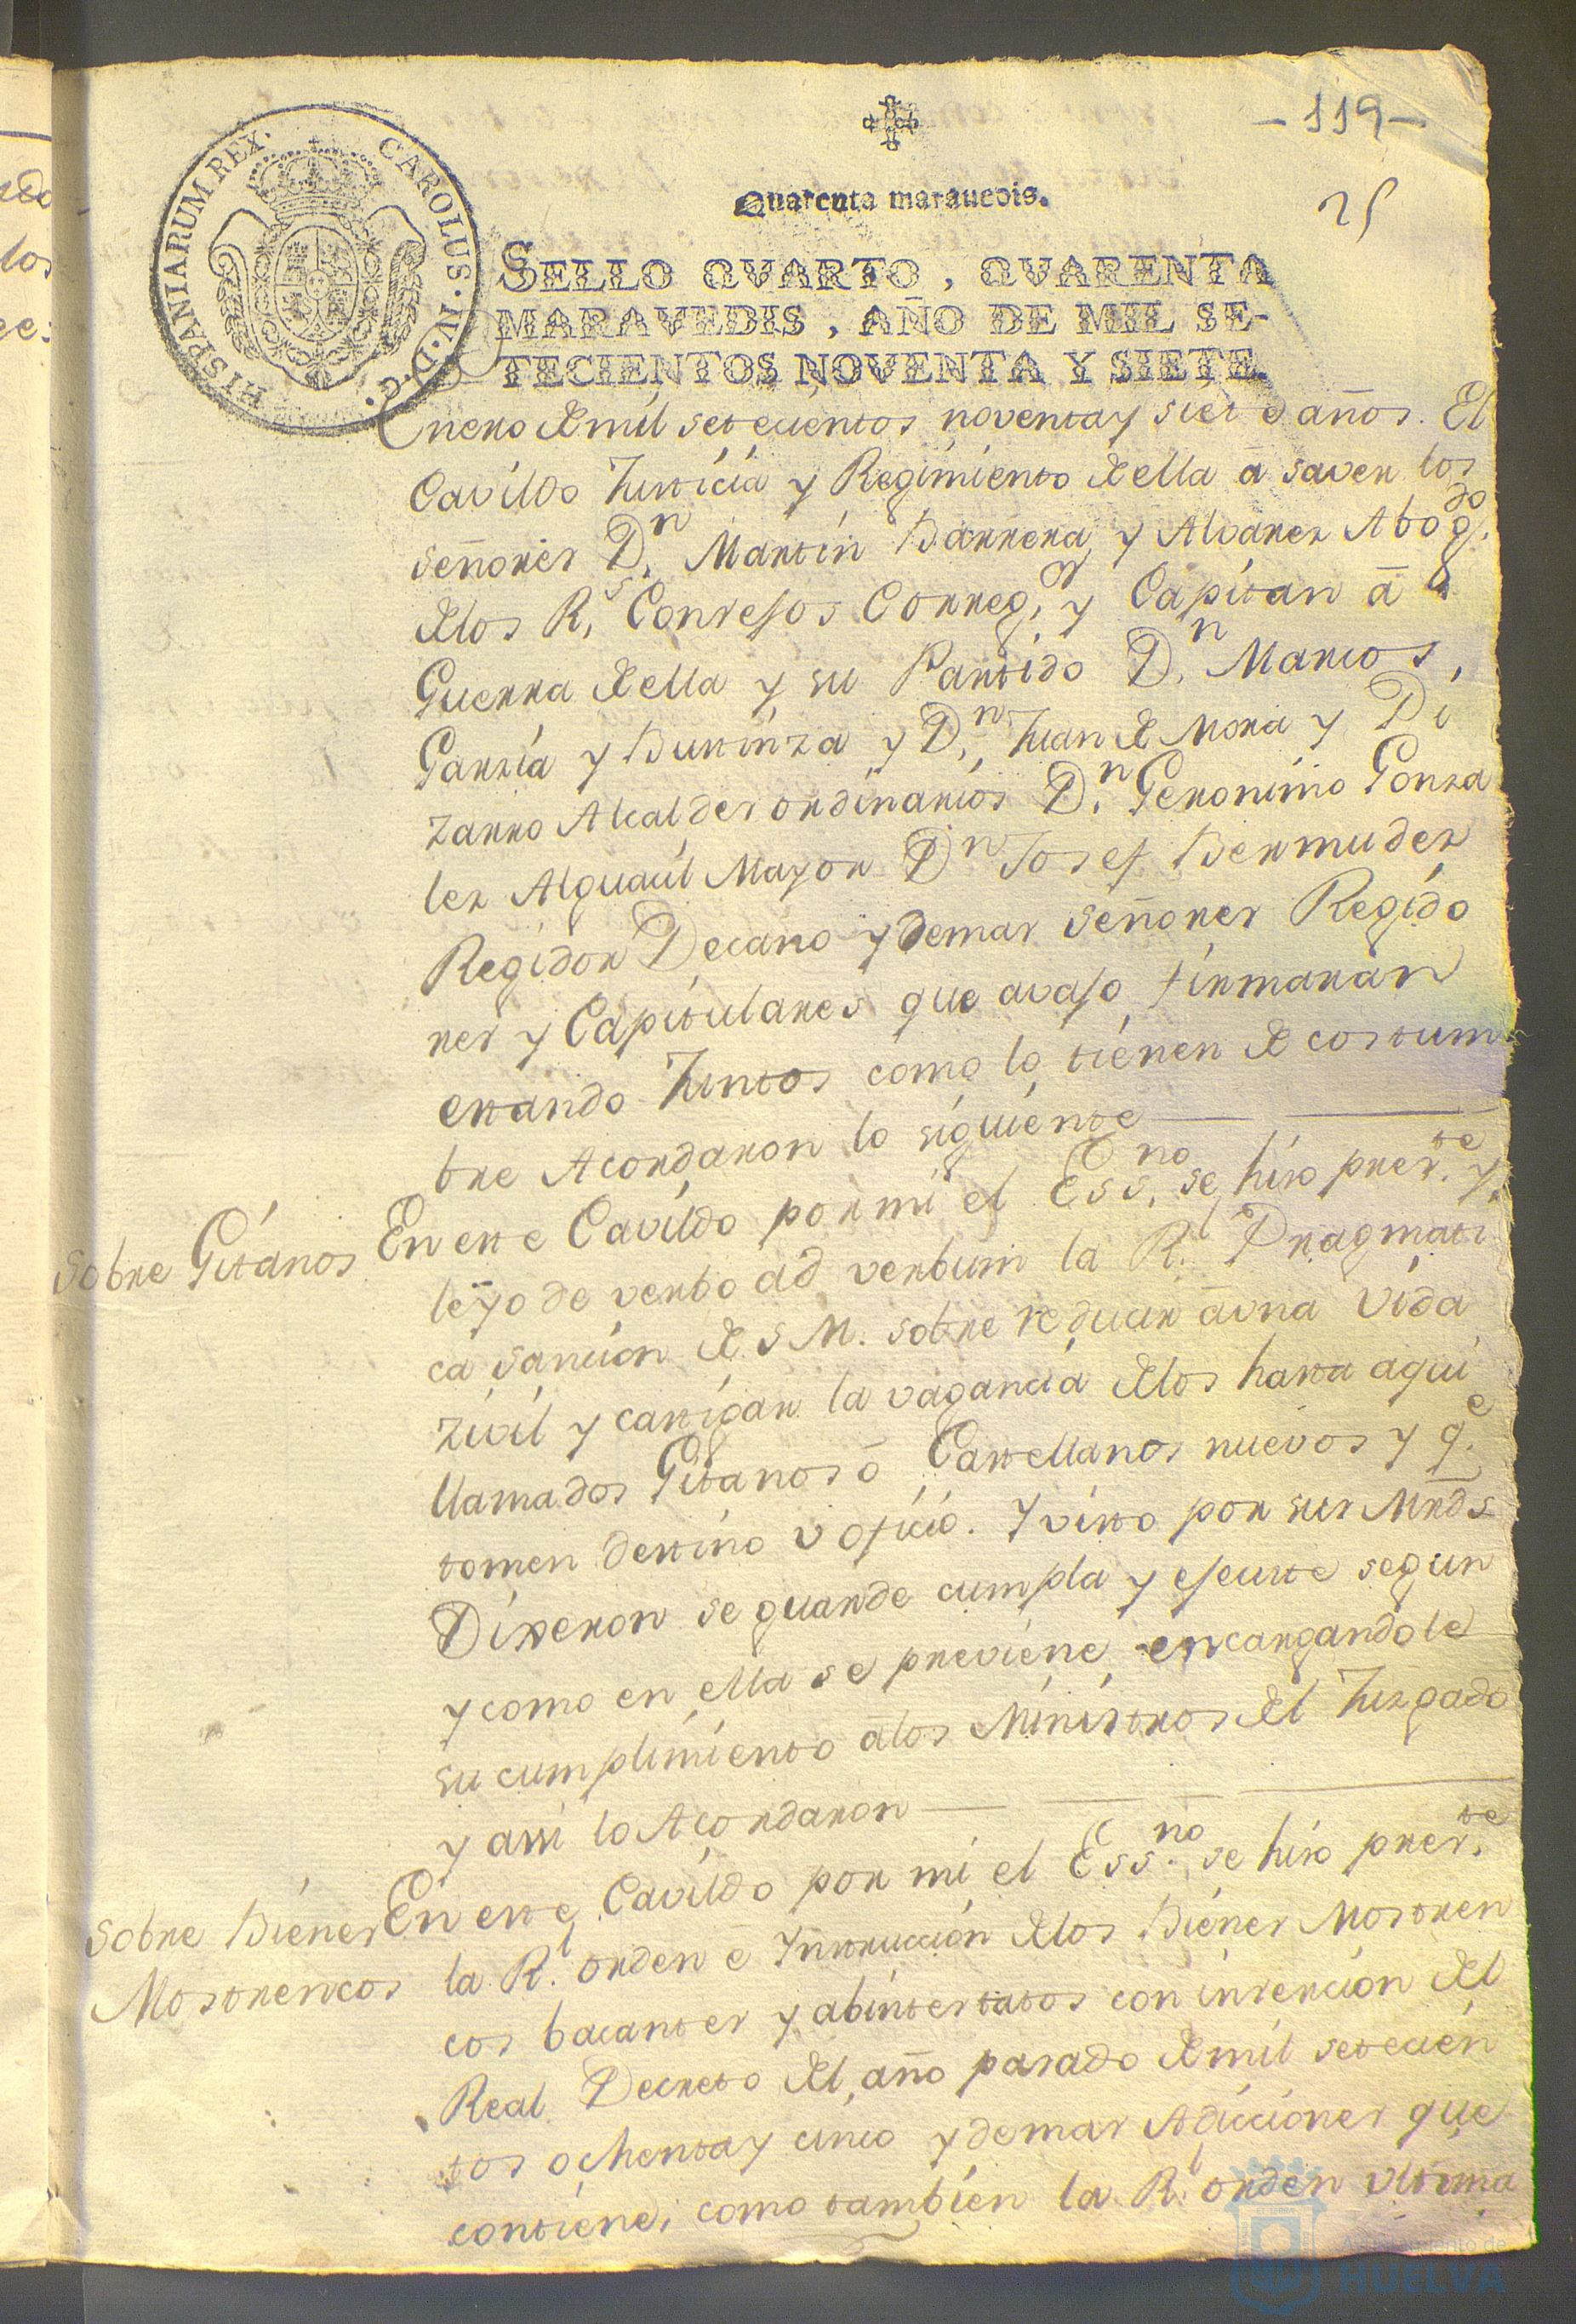 -119-
25
Quarenta maravedis.
HISPANIARUM REX. CAROLUS. IV. D. G.
SELLO QVARTO, QVARENTA
MARAVEDIS, AÑO DE MIL SE-
TECIENTOS NOVENTA Y SIETE.
Enero de mil setecientos noventa y siete años. El
Cavildo Justicia y Regimiento de ella a saver los
señores Dn. Martin Barrera y Alvarez Abogdo.
de los Rs. Consejos Corregor. y Capitan á
Guerra de ella y su Partido Dn. Marcos
Garzia y Burinza y Dn. Juan de Mora y Pi
zarro Alcaldes ordinarios Dn. Geronimo Gonza
lez Alguacil Mayor Dn Josef Bermudez
Regidor Decano y demas señores Regido
res y Capitulares que avajo firmaran
estando Juntos como lo tienen de costum
bre Acordaron lo siguiente
Sobre Gitanos
En este Cavildo por mi el Essno. se hizo preste. y
leyo de verbo ad verbum la Rl. Pragmati
ca sancion de S M. sobre reducir á una vida
zivil y castigar la vagancia de los hasta aqui
llamados Gitanos ó Castellanos nuevos y qe.
tomen destino v oficio. Y visto por sus Mrds
Dixeron se guarde cumpla y ejecute segun
y como en ella se previene encargandole
su cumplimiento á los Ministros del Juzgado
y assi lo Acordaron
Sobre Bienes
Mostrencos
En este Cavildo por mi el Essno. se hizo preste.
la Rl. orden e Ynstruccion de los Bienes Mostren
cos bacantes y abintestatos con insercion del
Real Decreto del año pasado de mil setecien
tos ochenta y cinco y demas Adicciones que
contiene, como tambien la Rl. orden vltima
Ayuntamiento de
HUELVA